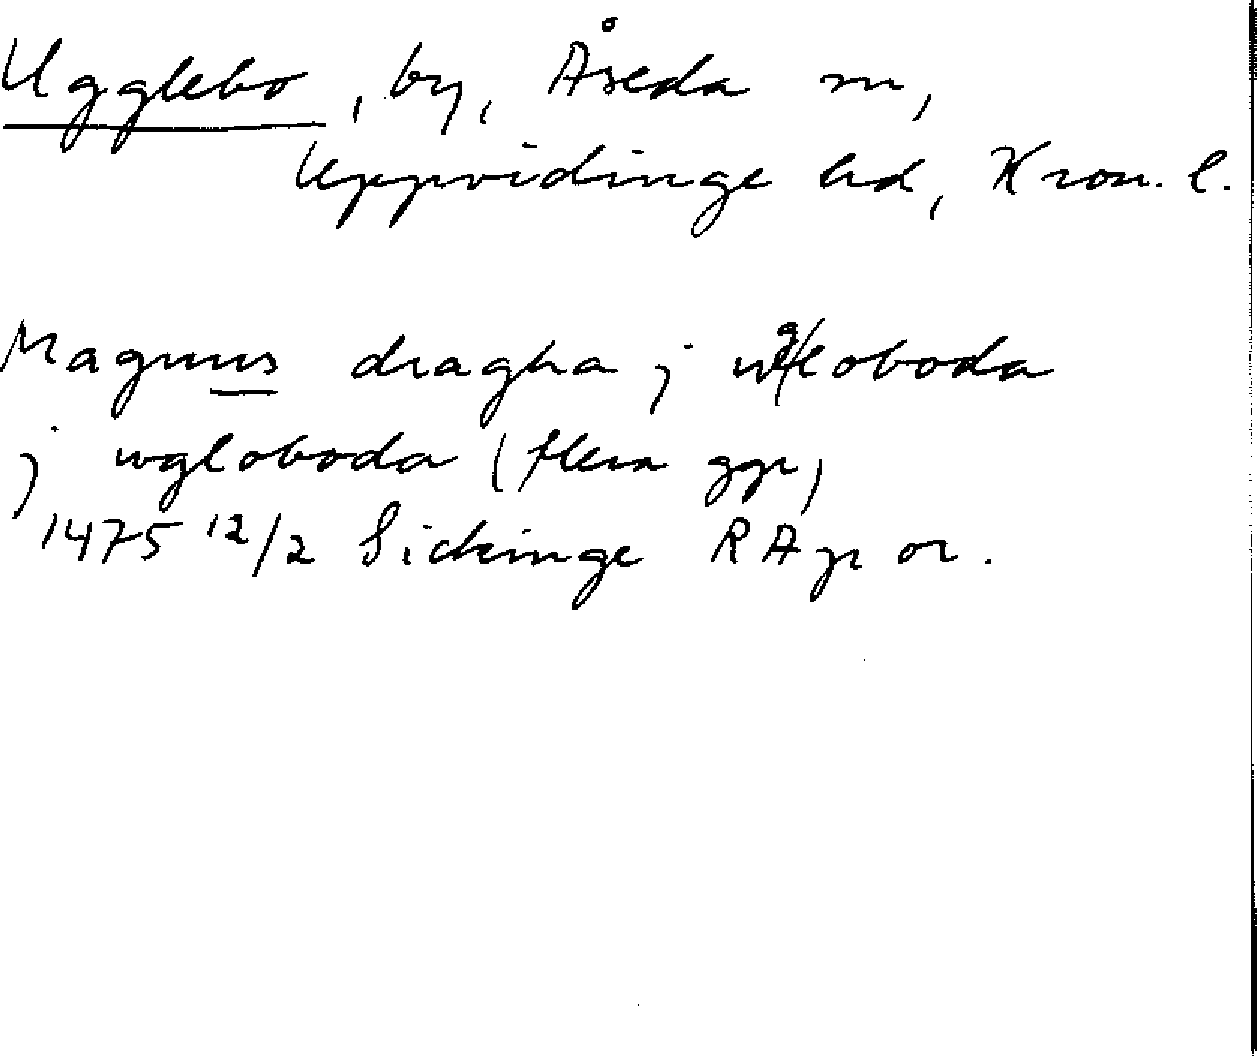 Ugglebo, by, Åseda sn,
Uppvidinge hd, Kron. l.
Magnus dragha j wgloboda
j wgloboda (flera ggr)
1475 12/2 Sickinge RAp or.